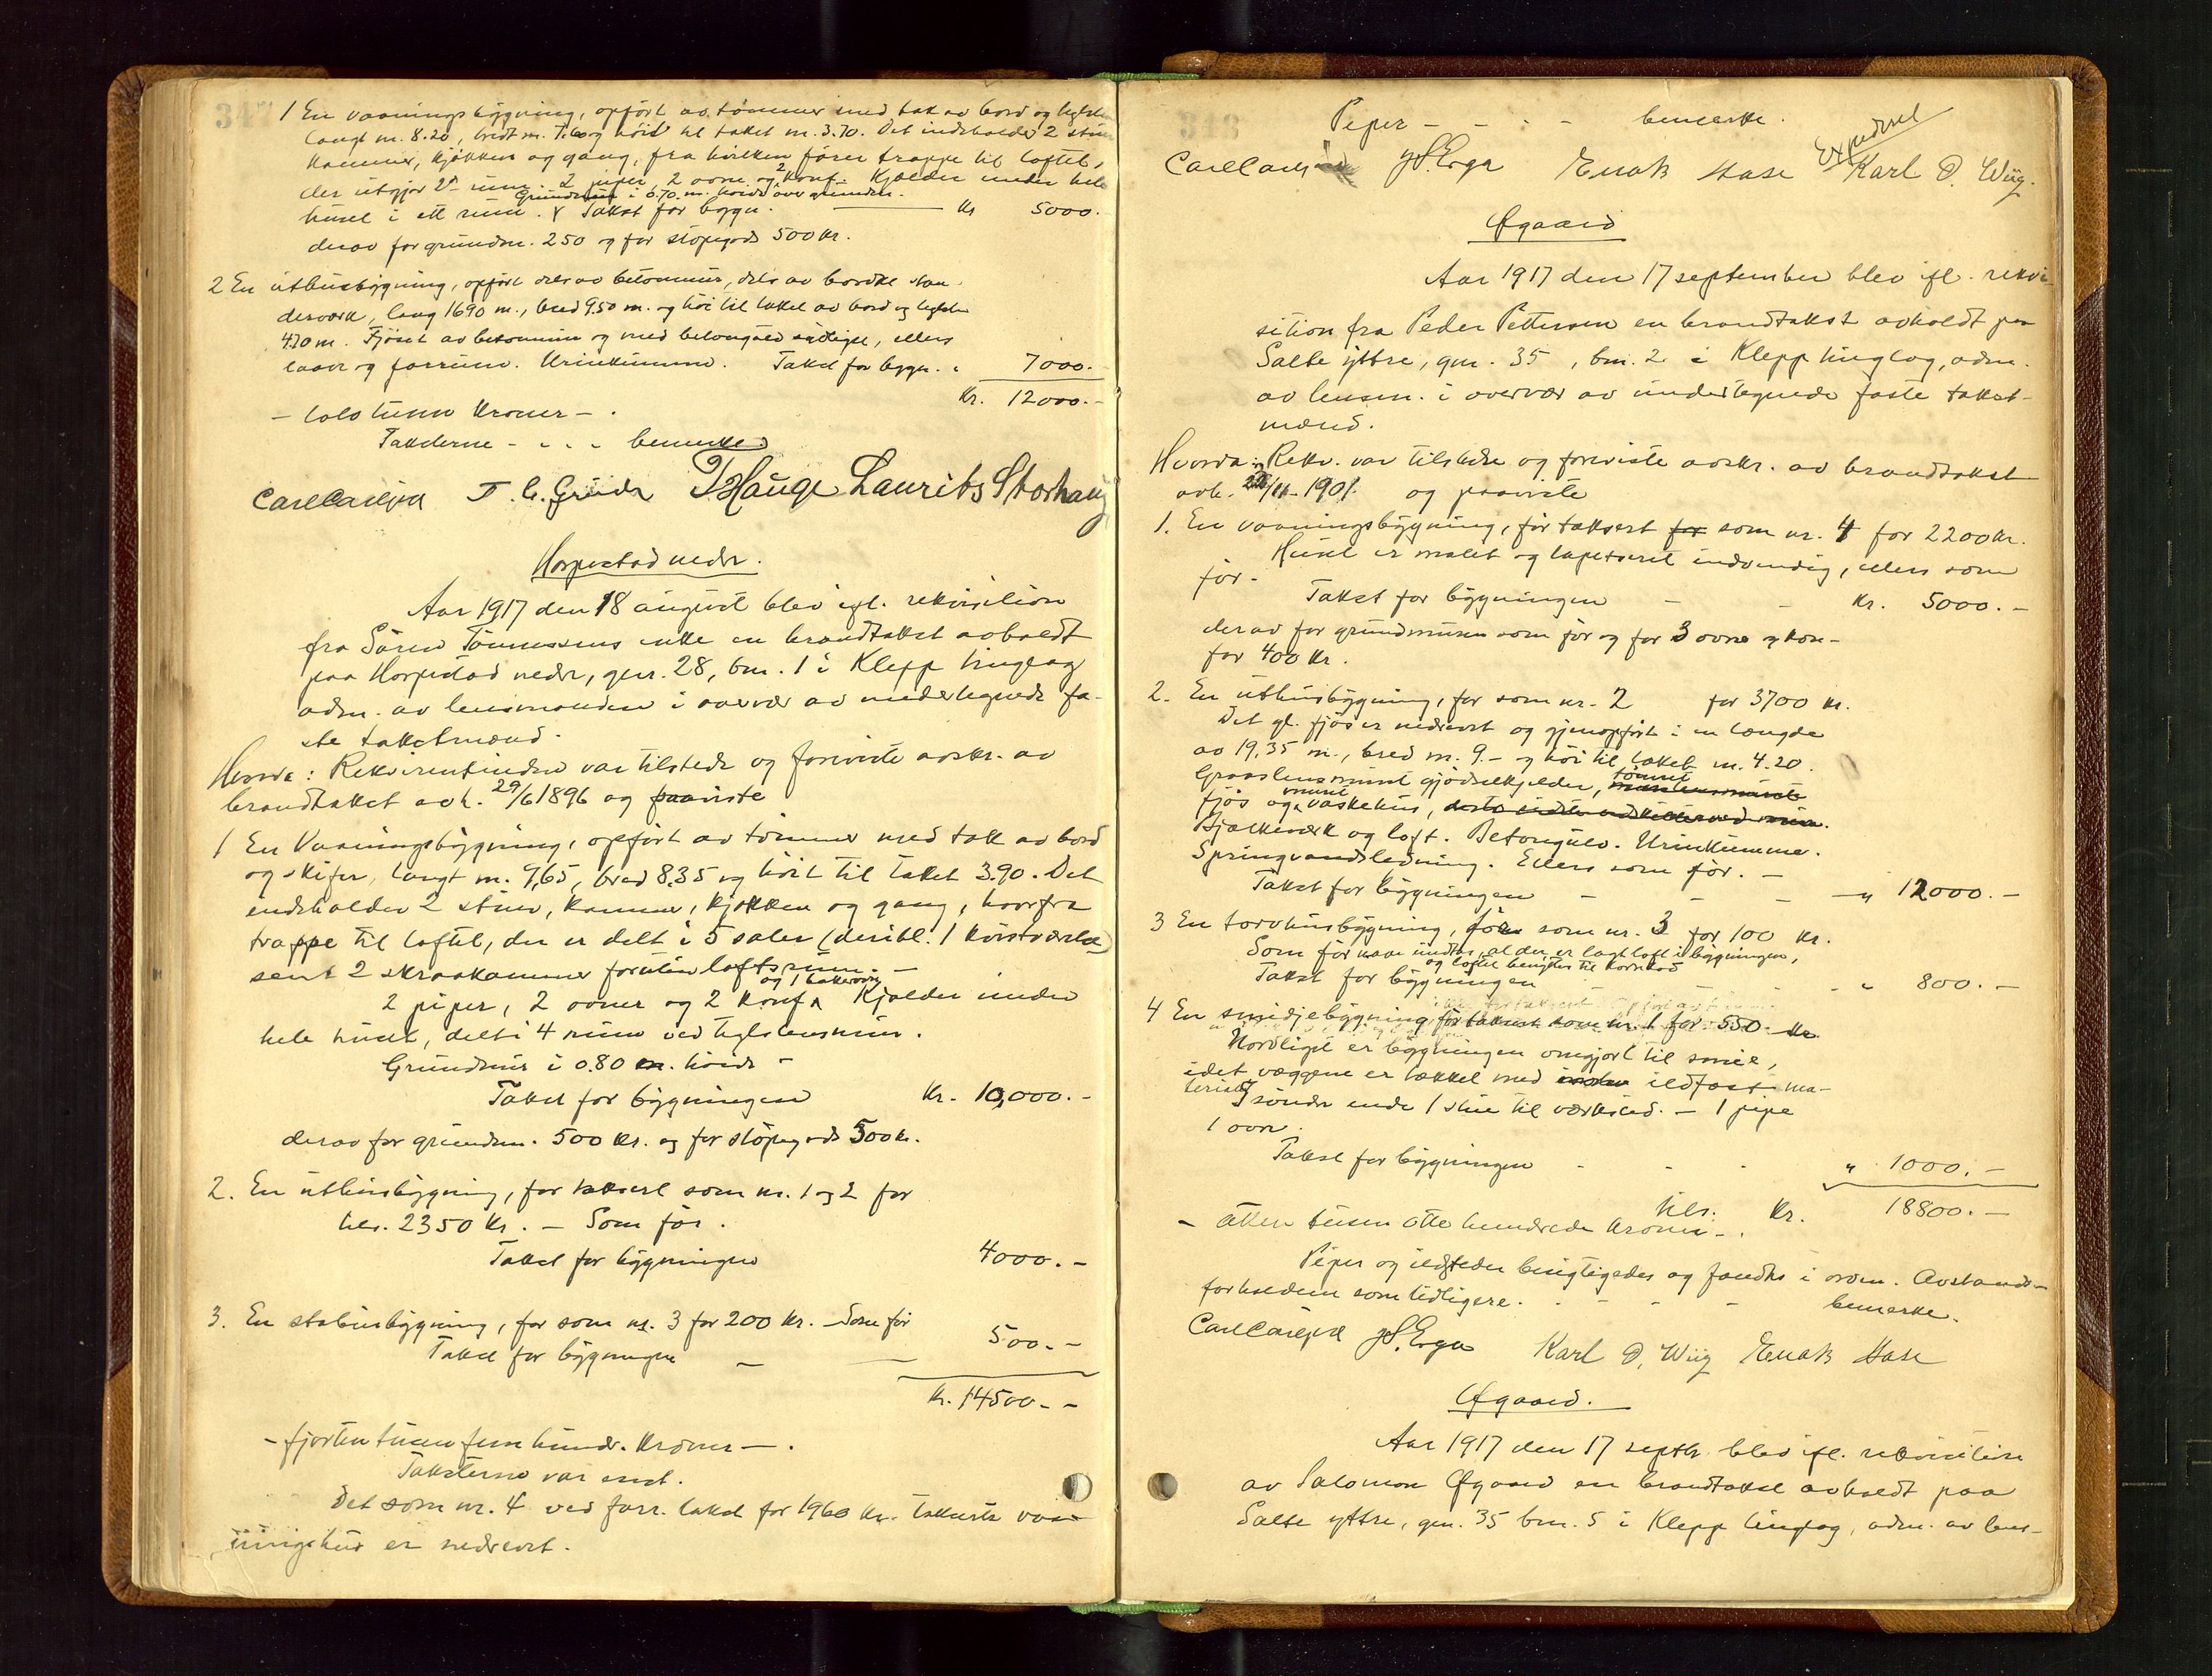 347
1 En vaaningsbygning, opført av tømmer med tak av bord og teglsten
langt m. 8.20, bredt m. 7.60 og høit til taket m. 3.70. Det indeholder 2 stuer
kammer, kjøkken og gang, fra hvilken fører trappe til loftet,
der utgjør 2 rum. 2 piper, 2 ovne og 2 konf. Kjælder under hele
Grundmur i 0.70 m. høide over grunden.
huset i ett rum. Takst for bygn. Kr 5000.-
derav for grundm. 250 og for støpegods 500 kr.
2 En uthusbygning, opført dels av betonmur, dels av bordkl. stan-
derværk, lang 1690 m., bred 9.50 m. og høi til taket av bord og teglsten
4.70 m. Fjøset av betonmur og med betongulv, ellers
laave og forrum. Urinkumme. Takst for bygn. " 7000.-
Kr. 12000.-
- tolv tusen kroner - .
Taksterne - - - - bemerke.
Carl Carlsen T. C. Grude T Hauge Laurits Storhaug
Horpestad nedr.
Aar 1917 den 18 august blev ifl. rekvisition
fra Søren Tønnessens enke en brandtakst avholdt
paa Horpestad nedr, gnr. 28, bnr. 1 i Klepp tinglag
adm. av lensmanden i overvær av undertegnede fa-
ste takstmænd.
Hvorda: Rekvirentinden var tilstede og foreviste avskr. av
brandtakst avh. 29/6 1896 og paaviste
1 En Vaaningsbygning, opført av tømmer med tak av bord
og skifer, langt m. 9,65, bred 8,35 og høit til taket 3.90. Det
indeholder 2 stuer, kammer, kjøkken og gang, hvorfra
trappe til loftet, der er delt i 5 saler (deribl. 1 kvistværelse)
samt 2 skraakammer foruten loftsrum. -
og 1 bakerovn
2 piper, 2 ovner og 2 konf. Kjælder under
hele huset, delt i 4 rum ved teglstensmur.
Grundmur i 0.80 m. høide -
Takst for bygningen Kr. 10,000.-
derav for grundm. 500 kr. og for støpegods 500 kr.
2. En uthusbygning, før taksert som nr. 1 og 2 for
tils. 2350 kr. - Som før.
Takst for bygningen 4000.-
3. En stabursbygning, før som nr. 3 for 200 kr. - Som før
Takst for bygningen - 500.-
Kr. 14500.-
- fjorten tusen fem hundr. kroner - .
Taksterne var enst.
Det som nr. 4 ved forr. takst for 1960 kr. takserte vaa-
ningshus er nedrevet.
348
Piper - - - - bemerke.
Expedert
Carl Carlsen J S. Erga Enok Hase Karl O. Wiig.
Øgaard
Aar 1917 den 17 september blev ifl. rekvi-
sition fra Peder Pettersen en brandtakst avholdt paa
Salte yttre, gnr. 35, bnr. 2 i Klepp tinglag, adm.
av lensm. i overvær av undertegnede faste takst-
mænd.
Hvorda: Rekv. var tilstede og foreviste avskr. av brandtakst
avh. /11-1901. og paaviste
1. En vaaningsbygning, før taksert for som nr. 4 for 2200 kr.
Huset er malet og tapetseret indvendig, ellers som
før. -
Takst for bygningen - - Kr. 5000.-
derav for grundmuren som før og for 3 ovne og kon-
for 400 kr.
2. En uthusbygning, før som nr. 2 for 3700 kr.
Det gl. fjøs er nedrevet og gjenopført i en længde
av 19,35 m., bred m. 9.- og høi til taket m. 4.20.
Graastensmurt gjødselkjelder, tømret
fjøs og murt vaskehus,
Bjælkeværk og loft. Betongulv. Urinkumme.
Springvandsledning. Ellers som før. -
Takst for bygningen - - - " 12000.-
3 En torvhusbygning, før som nr. 3 for 100 kr.
Som før naar undtas, at der er lagt loft i bygningen,
og loftet benyttes til kornbod
Takst for bygningen - - " 800.-
4 En smidjebygning før taksert som nr. 1 for 550.- kr.
Nordligst er bygningen omgjort til smie,
idet væggene er tækket med ildfast ma-
teriale. I søndre ende 1 stue til værksted. - 1 pipe
1 ovn.
Takst for bygningen - - - " 1000.-
tils. Kr. 18800.-
- atten tusen otte hundrede kroner - .
Piper og ildsteder besigtigedes og fandtes i orden. Avstands-
forholdene som tidligere. - - - - bemerke.
Carl Carlsen J S. Erga Karl O. Wiig Enok Hase
Øgaard.
Aar 1917 den 17 septbr. blev ifl. rekvisition
av Salomon Øgaard en brandtakst avholdt paa
Salte yttre, gnr. 35 bnr. 5 i Klepp tinglag, adm. av lens-